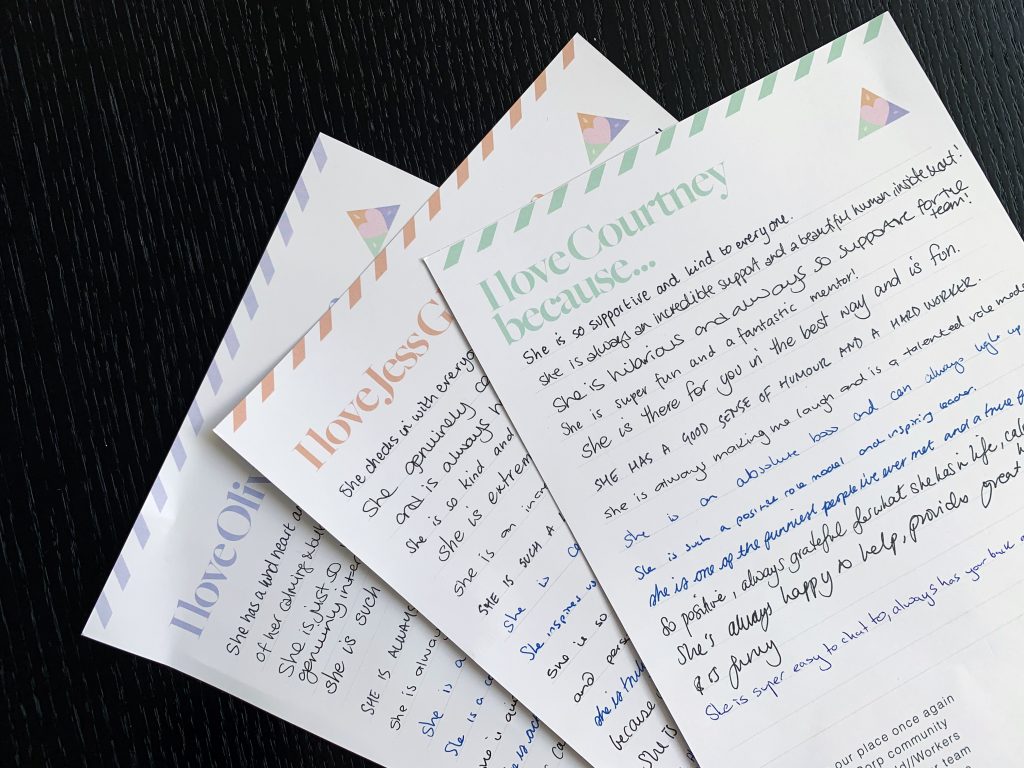 I love Courtney
because...
She is so supportive and kind to everyone.
She is always an incredible support and a beautiful human inside & out!
She is hilarious and always so supportive for the
team!
She is super fun and a fantastic mentor!
She is there for you in the best way and is fun.
SHE HAS A GOOD SENSE OF HUMOUR AND A HARD WORKER.
She is always making me laugh and is a talented role mode
She is an absolute boss and can always light up
She is such a positive role model and inspiring leader.
She is one of the funniest people I've ever met and a true
So positive, always grateful for what she has in life,
She's always happy to help, provides great
& is funny
She is super easy to chat to, always has your back
our place once again
orp community
id//Workers
r team
I love Jess G
She checks in with everyo
She genuinely ca
and is always h
She is so kind and
She is extrem
She is an in
SHE IS SUCH A
She is
She inspires
She is so
and pers
She is tru
because
She is
I love Oliv
She has a kind heart a
of her calming
She is just so
genuinely inte
She is such
SHE IS ALWAYS
She is alwa
She is a
She is a